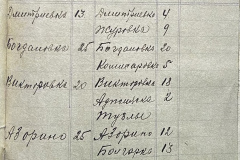 Дмитриевка 13 Дмитриевка 4
Журовка 9
Богдановка 25 Богдановка 20
5
Викторовка 20 Викторовка 18
Аджиаска 2
Тузлы
Аворино 25 Аворино 12
Болгарка 13